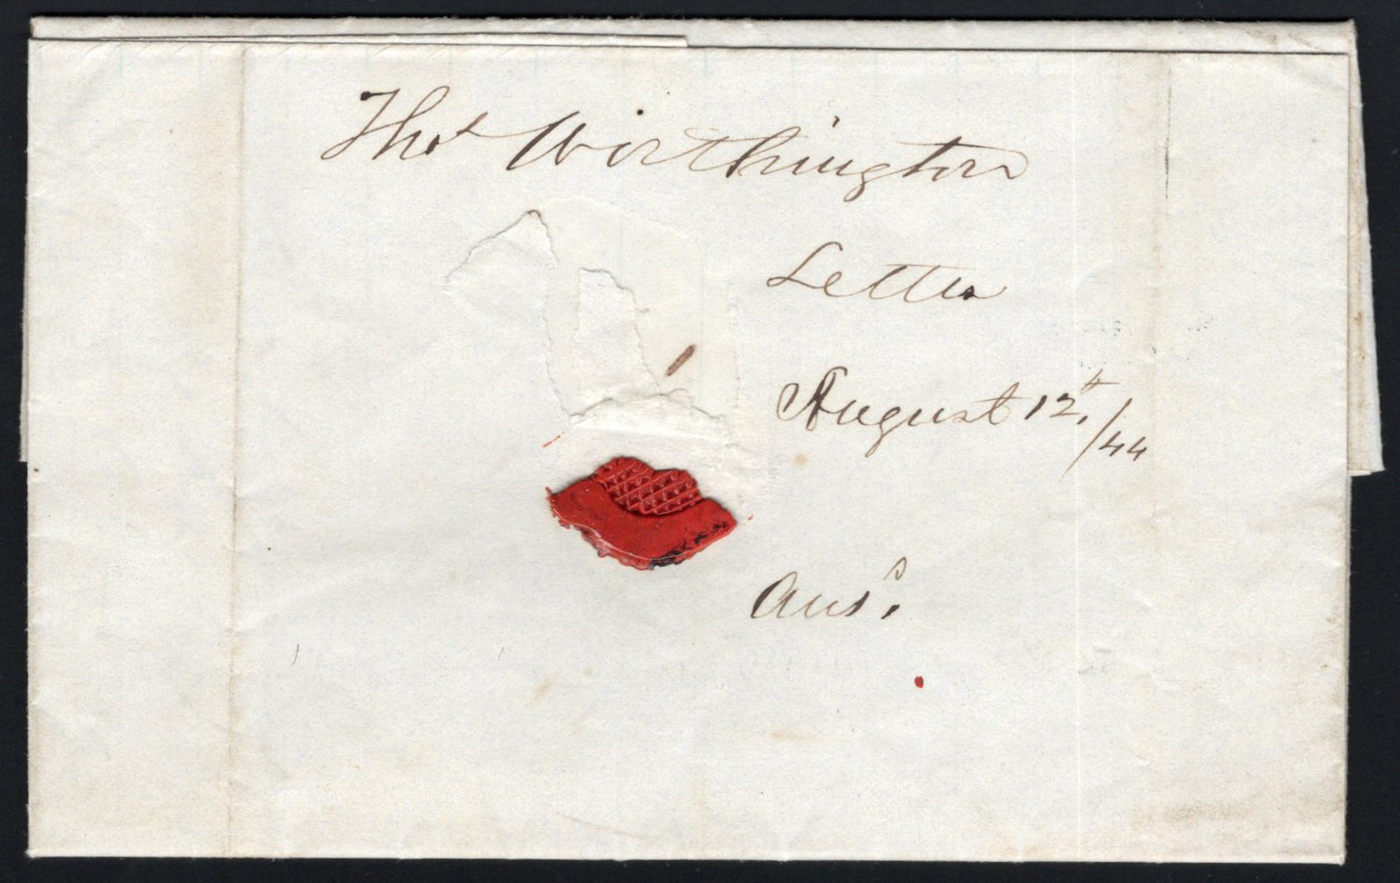 Thos Worthington
Letter
August 12th/44
Ansd.